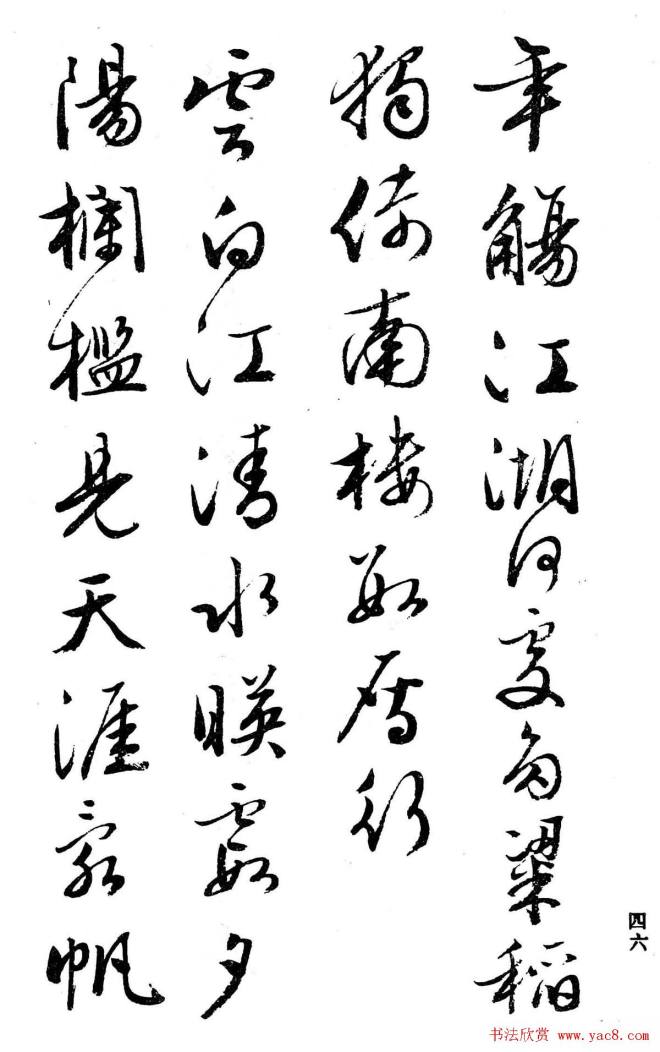 年觴江湖何處多粱稻
獨倚南樓數雁行
雲白江清水暎霞夕
陽欄檻見天涯帆
四六
书法欣赏 www.yac8.com